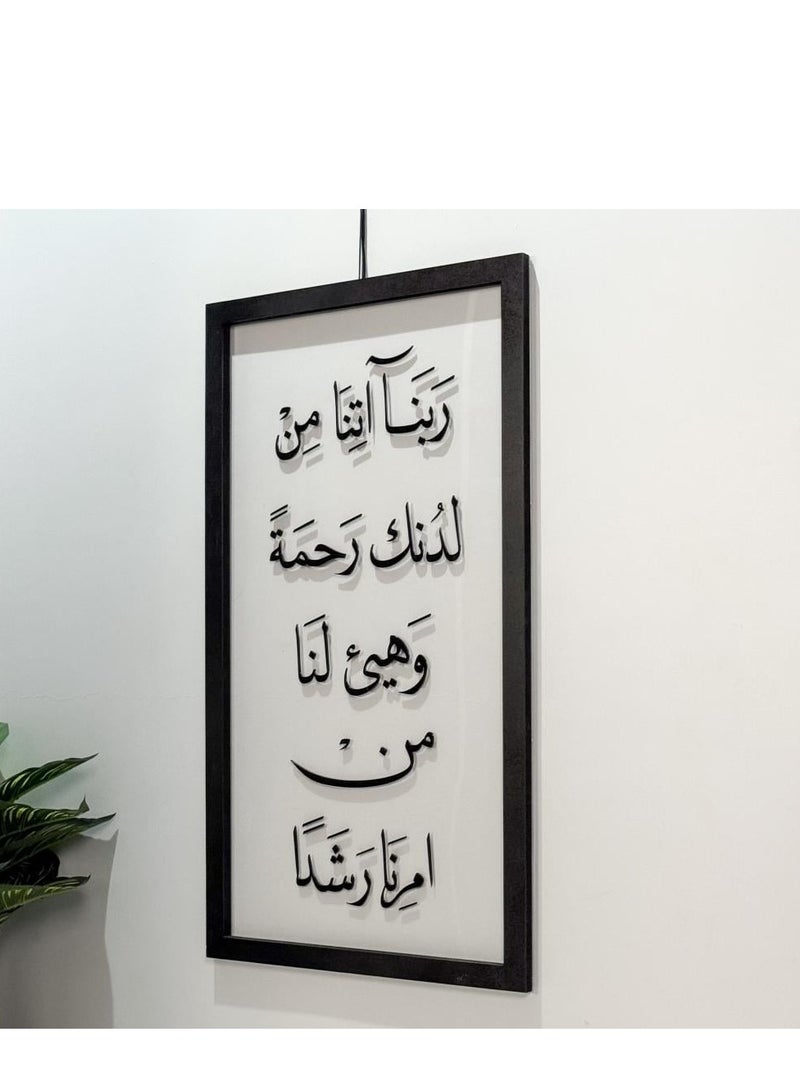 رَبَنَآ اتِنَا مِنْ
لدُنك رَحمَةً
وَهيئ لنَا
من ْ
امرِنَا رَشَدًا